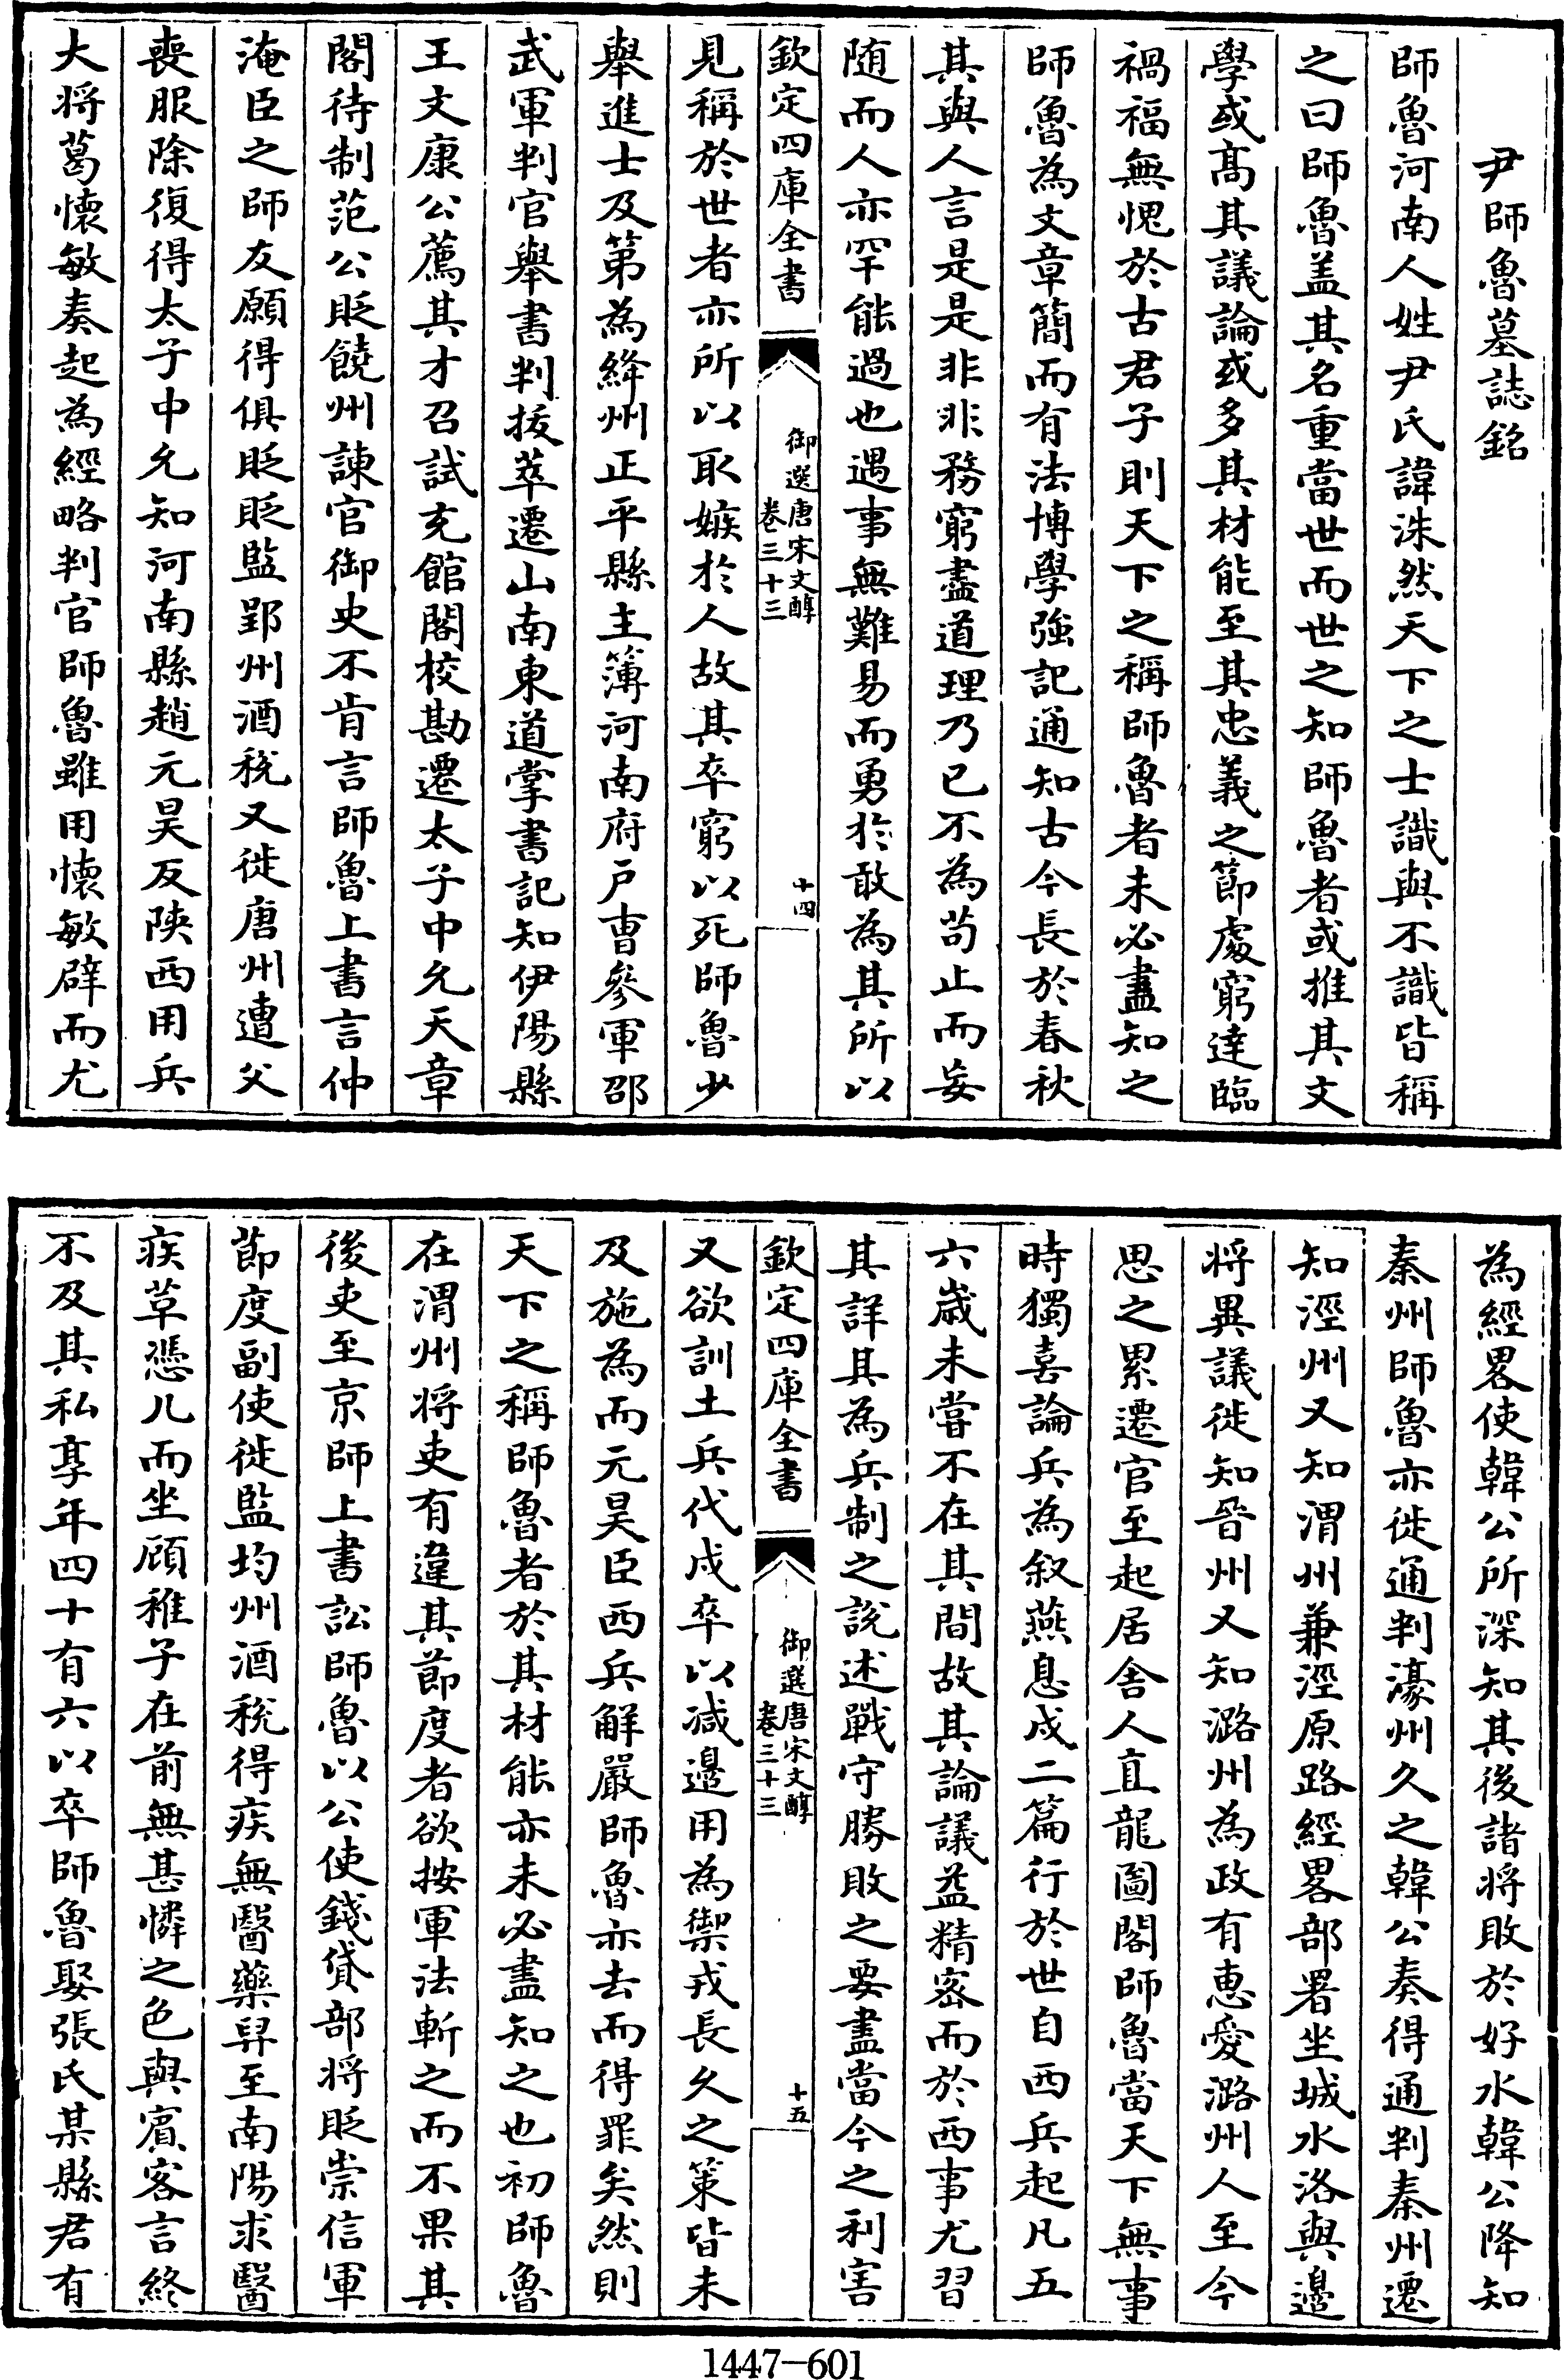 尹師魯墓誌銘
師魯河南人姓尹氏諱洙然天下之士識與不識皆稱
之曰師魯盖其名重當世而世之知師魯者或推其文
學或髙其議論或多其材能至其忠義之節處窮達臨
禍福無愧於古君子則天下之稱師魯者未必盡知之
師魯為文章簡而有法博學強記通知古今長於春秋
其與人言是是非非務窮盡道理乃已不為茍止而妄
随而人亦罕能過也遇事無難易而勇於敢為其所以
欽定四庫全書
御選唐宋文醇
卷三十三
十四
見稱於世者亦所以取嫉於人故其卒窮以死師魯少
舉進士及第為絳州正平縣主簿河南府户曹參軍邵
武軍判官舉書判拔萃遷山南東道掌書記知伊陽縣
王文康公薦其才召試充館閣校勘遷太子中允天章
閣待制范公貶饒州諫官御史不肯言師魯上書言仲
淹臣之師友願得俱貶貶監郢州酒税又徙唐州遭父
喪服除復得太子中允知河南縣趙元昊反陜西用兵
大将葛懐敏奏起為經略判官師魯雖用懐敏辟而尤
為經畧使韓公所深知其後諸将敗於好水韓公降知
秦州師魯亦徙通判濠州久之韓公奏得通判秦州遷
知涇州又知渭州兼涇原路經畧部署坐城水洛與邉
将異議徙知晉州又知潞州為政有惠愛潞州人至今
思之累遷官至起居舍人直龍圖閣師魯當天下無事
時獨喜論兵為叙燕息戍二篇行於世自西兵起凡五
六歳未嘗不在其間故其論議益精宻而於西事尤習
其詳其為兵制之說述戰守勝敗之要盡當今之利害
欽定四庫全書
御選唐宋文醇
卷三十三
十五
又欲訓土兵代戍卒以減邉用為禦戎長久之策皆未
及施為而元昊臣西兵解嚴師魯亦去而得罪矣然則
天下之稱師魯者於其材能亦未必盡知之也初師魯
在渭州将吏有違其節度者欲按軍法斬之而不果其
後吏至京師上書訟師魯以公使錢貸部将貶崇信軍
節度副使徙監均州酒税得疾無醫藥舁至南陽求醫
疾革憑几而坐顧稚子在前無甚憐之色與賔客言終
不及其私享年四十有六以卒師魯娶張氏某縣君有
1447—601